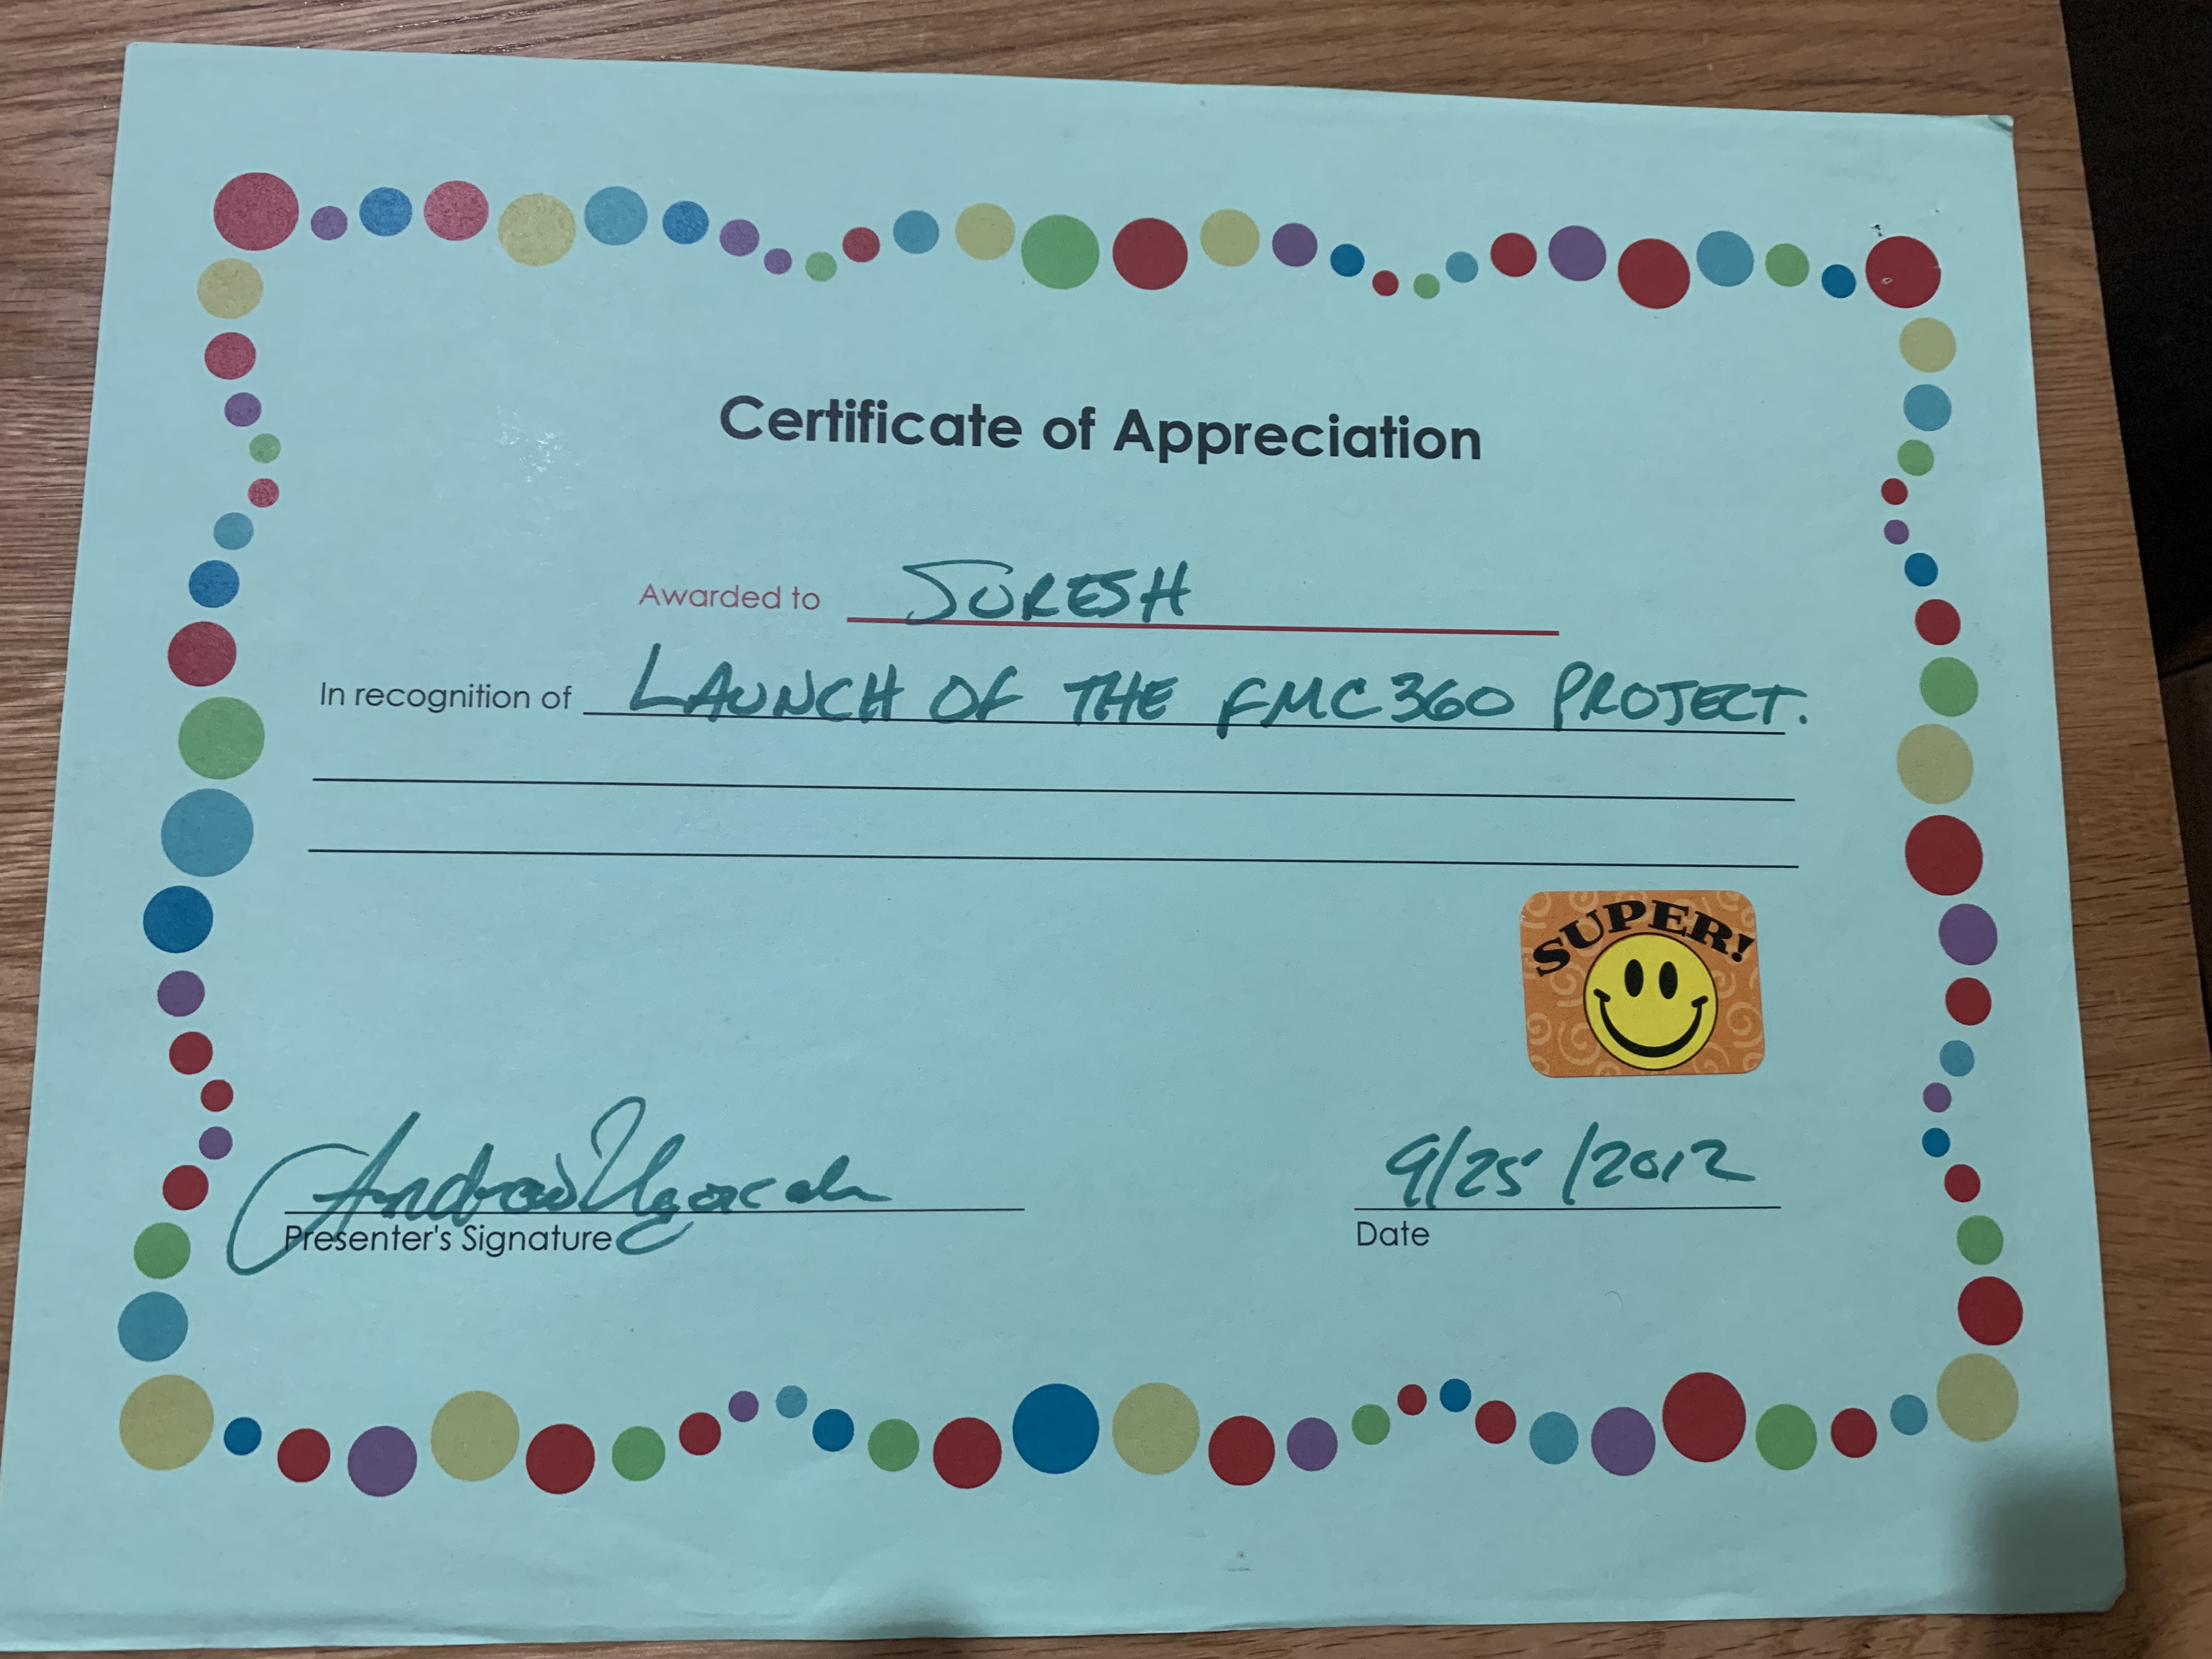 Certificate of Appreciation
Awarded to SURESH
In recognition of LAUNCH OF THE FMC360 PROJECT.
SUPER!
9/25/2012
Presenter's Signature
Date